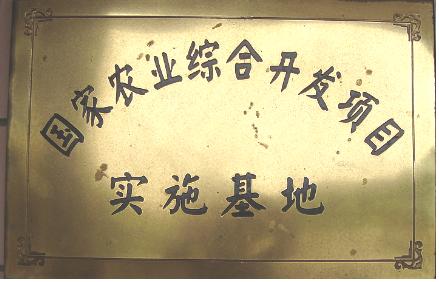 国家农业综合开发项目
实施基地